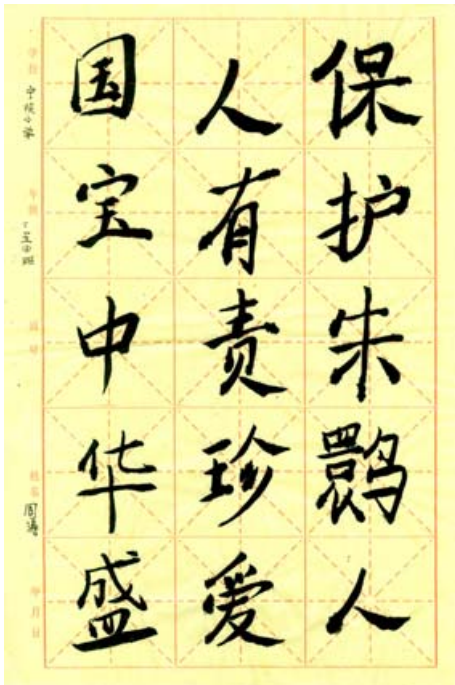 保护朱鹮人
人有责珍爱
国宝中华盛
学校 宁陕小学
年级
班
姓名 周
年月日